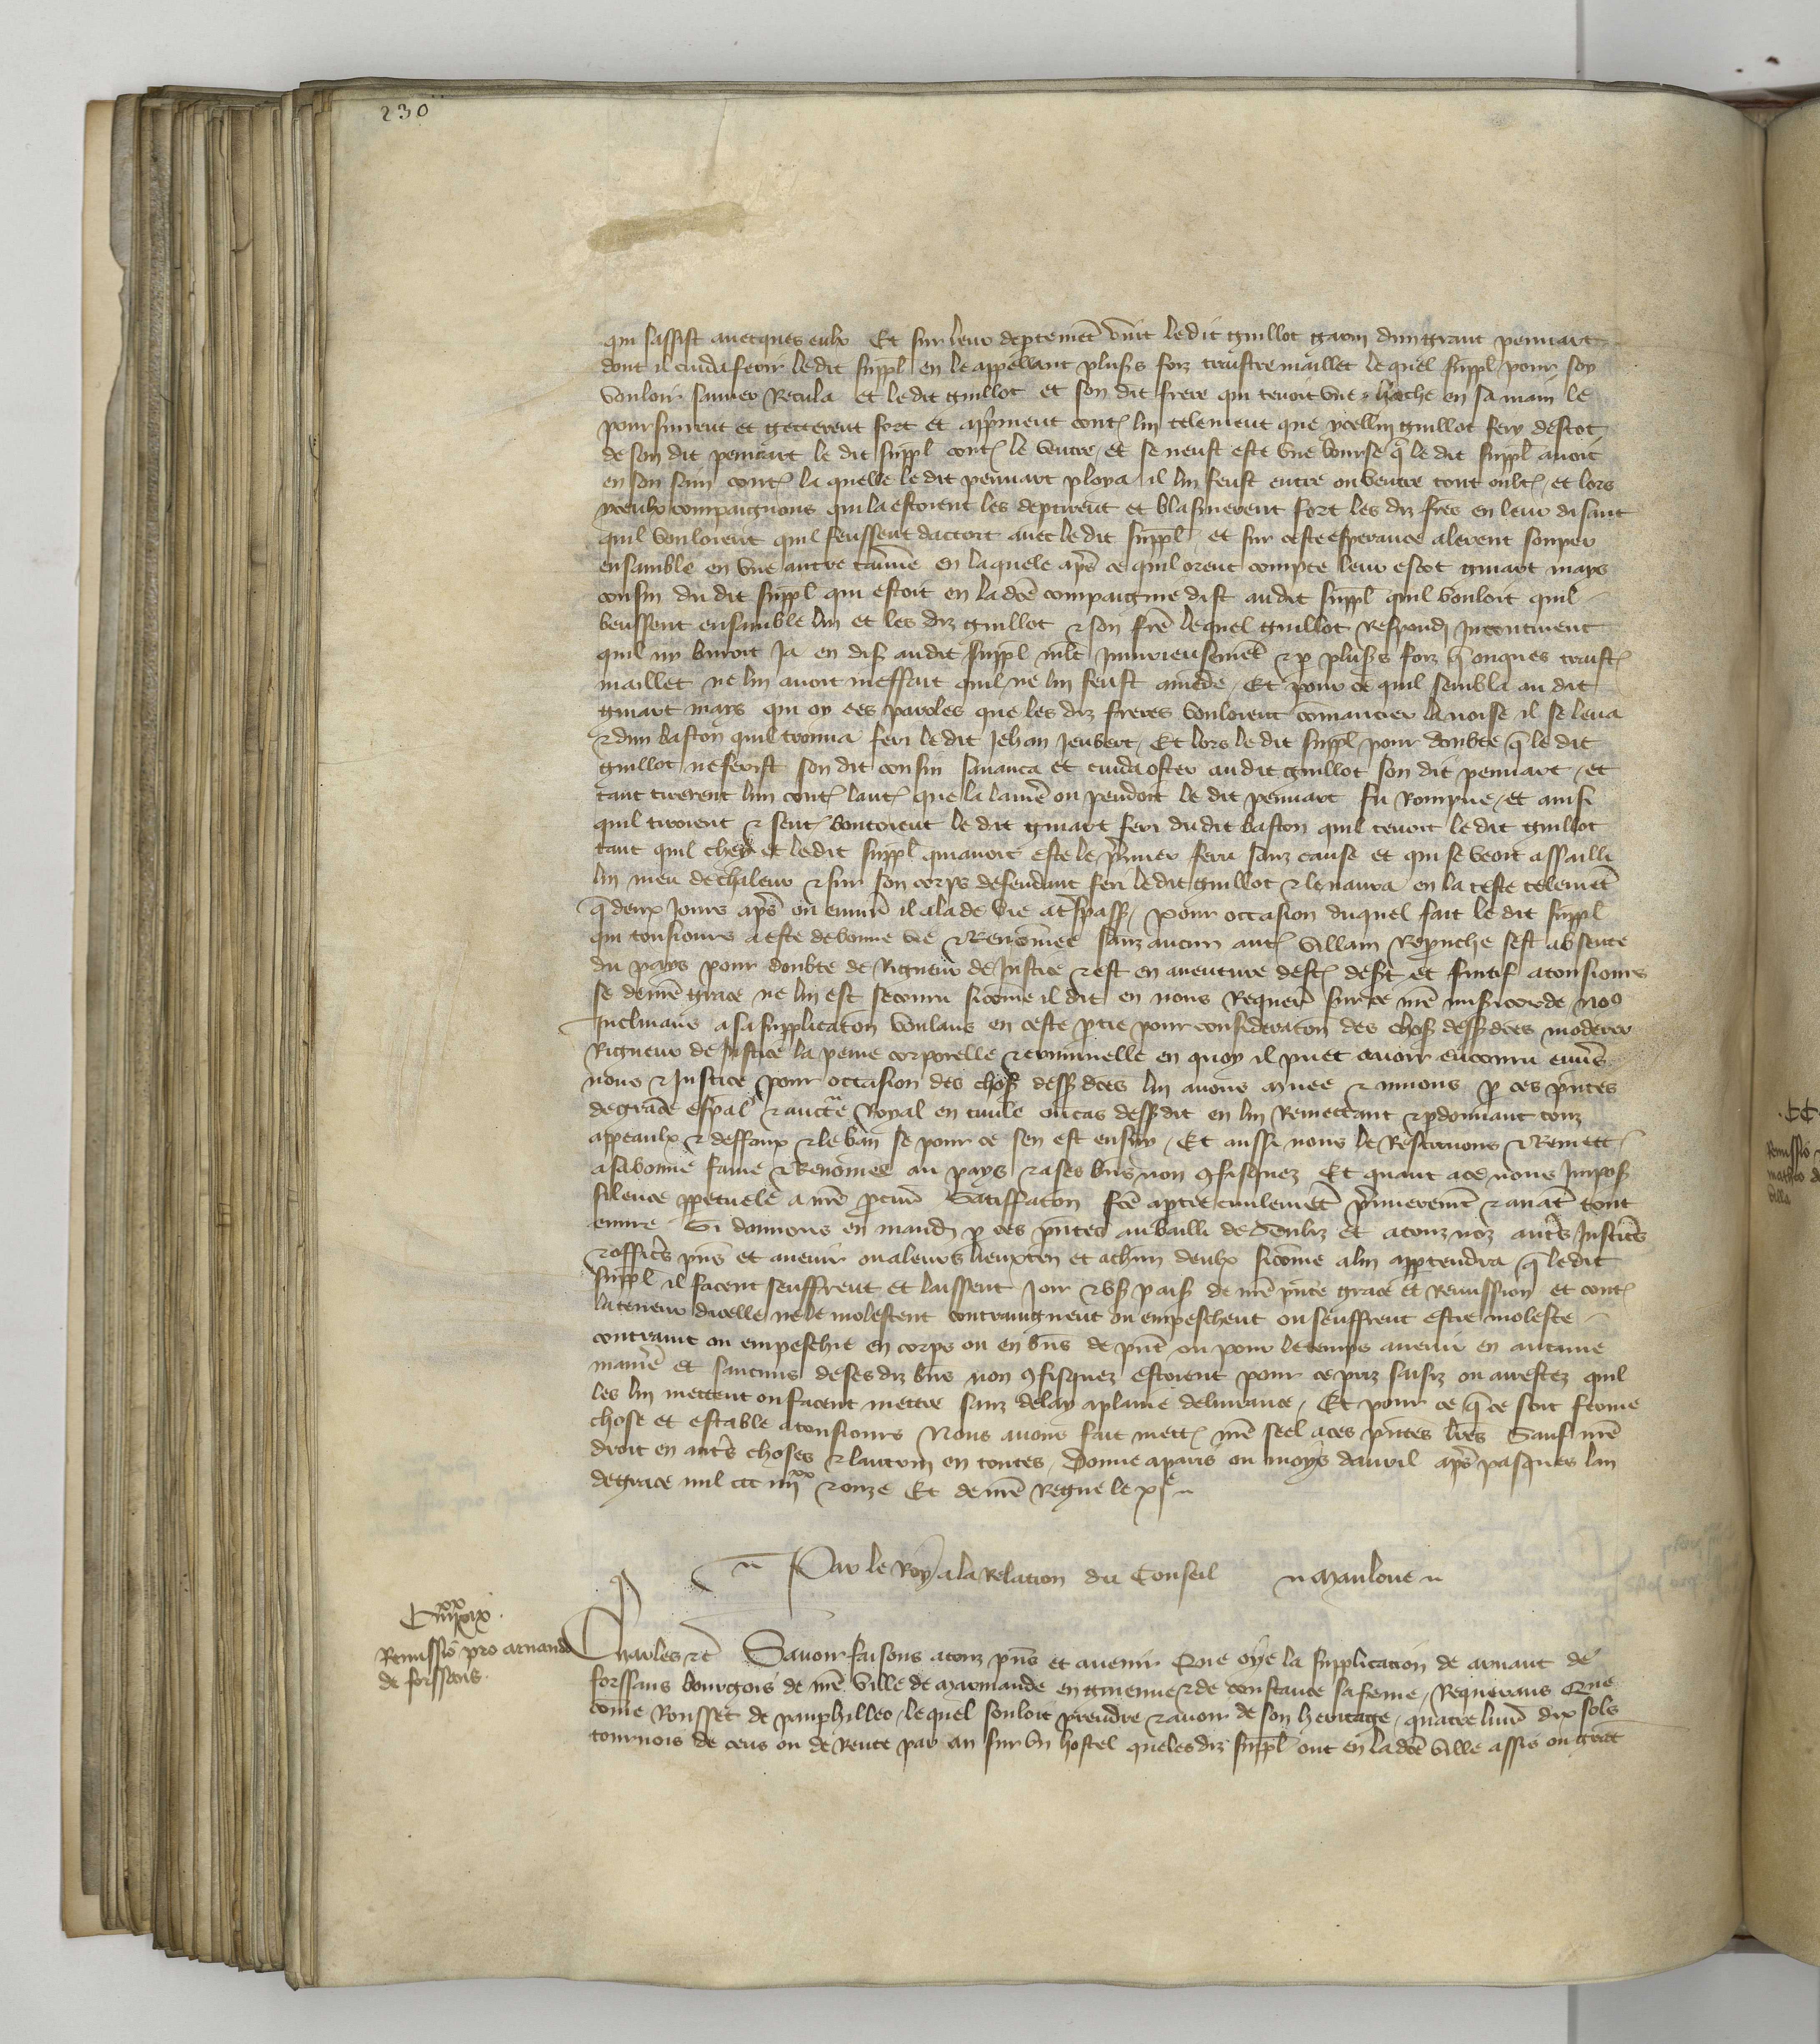 230
qui sassist avecques eulx Et sur leur deptemēt vint le dit guillot garni dun grant pennart
dont il cuida ferir le dit suppl en le appellant plus's foiz traistre maillet le quel suppl pour soy
vouloir sauver Recula et le dit guillot et son dit frere qui tenoit une hache en sa main le
poursuirent et getterent fort et aprement contr lui telement que ycellui guillot fery destoc
de son dit pennart le dit suppl contr le ventre et se neust este une bourse q le dit suppl avoit
en son sain contr la quelle le dit pennart ploya il lui feust entre ou ventre tout oultr et lors
yceulx compaignons qui la estoient les deptirent et blasmerent fort les diz frēs en leur disant
quil vouloient quil feussent dactort avec le dit suppl et sur ceste esperance alerent souper
ensamble en une autre tavērne en laquele apres ce quil orent compte leur escot guiart mays
cousin du dit suppl qui estoit en la dcē compaignie dist au dit suppl quil vouloit quil
beussent ensamble lui et les diz guillot & son frē le quel guillot Respondi Incontinent
quil ny buroit Ja en dis au dit suppl mlt Iniurieusemēt & p plus's foiz q onques traistr
maillet ne lui avoit meffait quil ne lui feust amēde Et pour ce quil sembla au dit
guiart mays qui oy ces paroles que les diz freres vouloient cōmancier la noise il se leva
& dun baston quil trouva feri le dit Jehan Jeubert Et lors le dit suppl pour doubte q le dit
guillot ne ferist son dit cousin savanca et cuida oster au dit guillot son dit pennart et
tant tirerent lun contr lautr que la laniēe ou pendoit le dit pennart fu Rompue et ainsi
quil tiroient & sentr boutoient le dit guiart feri du dit baston quil tenoit le dit guillot
tant quil cheÿ et le dit suppl qui avoit este le p'mier feru sanz cause et qui se veoit assailli
lui meu de chaleur & sur son corps defendant feri le dit guillot & le navra en la teste telemēt
q deux Jours apres ou environ il ala de vie a trespass Pour occasion duquel fait le dit suppl
qui tousiours a este de bonne vie & Renōmee sanz aucun autr villain Reprouche sest absente
du pays pour doubte de Rigueur de Justice & est en aventure destr desert et fuitif a tousiours
se de nrē grace ne lui est secouru sicōme il dit en nous Requerant sur ce nrē misericorde Nous
Inclinans a sa supplicaton voulans en ceste p'tie pour consideraton des chos dess' dces moderer
Rigueur de Justice la peine corporelle & criminelle en quoy il puet avoir encouru envers
nous & Justice pour occasion des chos dess' dces lui avons muee & muons p ces p'ntes
de grace esp'al & auctē Royal en civile ou cas dess' dit en lui Remettant & p'donnant touz
appeaulx & deffaux & le ban se pour ce sen est ensuy Et aussi nous le Restituons & Remett'
a sa bonne fame & Renōmee au pays & a ses biens non 9fisquez Et quant a ce nous Impos
silence ppetuele a nrē procur Satiffaton fcē a ptie civilemēt p'mierement & avāt tout
euvre Si donnons en mand p ces p'ntes au bailli de Senliz et a touz noz autres Justices
& offic's p'ns et avenir ou a leurs lieuxten et a chūn deulx sicōme a lui appertendra q le dit
suppl il facent seuffrent et laissent Joir & us' paisi de nrē p'nte grace et Remission et contr
la teneur dicelle ne le molestent contraingnent ou empeschent ou seuffrent estre moleste
contraint ou empeschie en corps ou en biens de p'nt ou pour le temps avenir en aucune
maniēe et saucuns de ses diz biens non 9fisquez estoient pour ce priz saisiz ou arrestez quil
les lui mettent ou facent mettre sanz delay a plaine delivrance Et pour ce q ce soit ferme
chose et estable a tousiours Nous avons fait mettr nrē seel a ces p'ntes lres Sauf nrē
droit en autres choses & lautrui en toutes Donne a paris ou moys davril apres pasques lan
de grace mil ccc iiijxx & onze Et de nrē Regne le xje
Par le Roy a la Relacion du Conseil Manloue
Ciiijxxxix
Remissiō pro arnando
de forssens
Charles &c Savoir faisons a touz p'ns et avenir Que oye la supplicacion de arnaut de
forssans bourgois de nrē ville de marmande en guienne & de constance sa feme Requerans Que
cōme Rousset de pamphilleo lequel souloit prendre & avoir de son heritage quatre livres dix solz
tournois de cens ou de Rente par an sur un hostel que les diz suppl ont en la dcē ville assis ou grāt